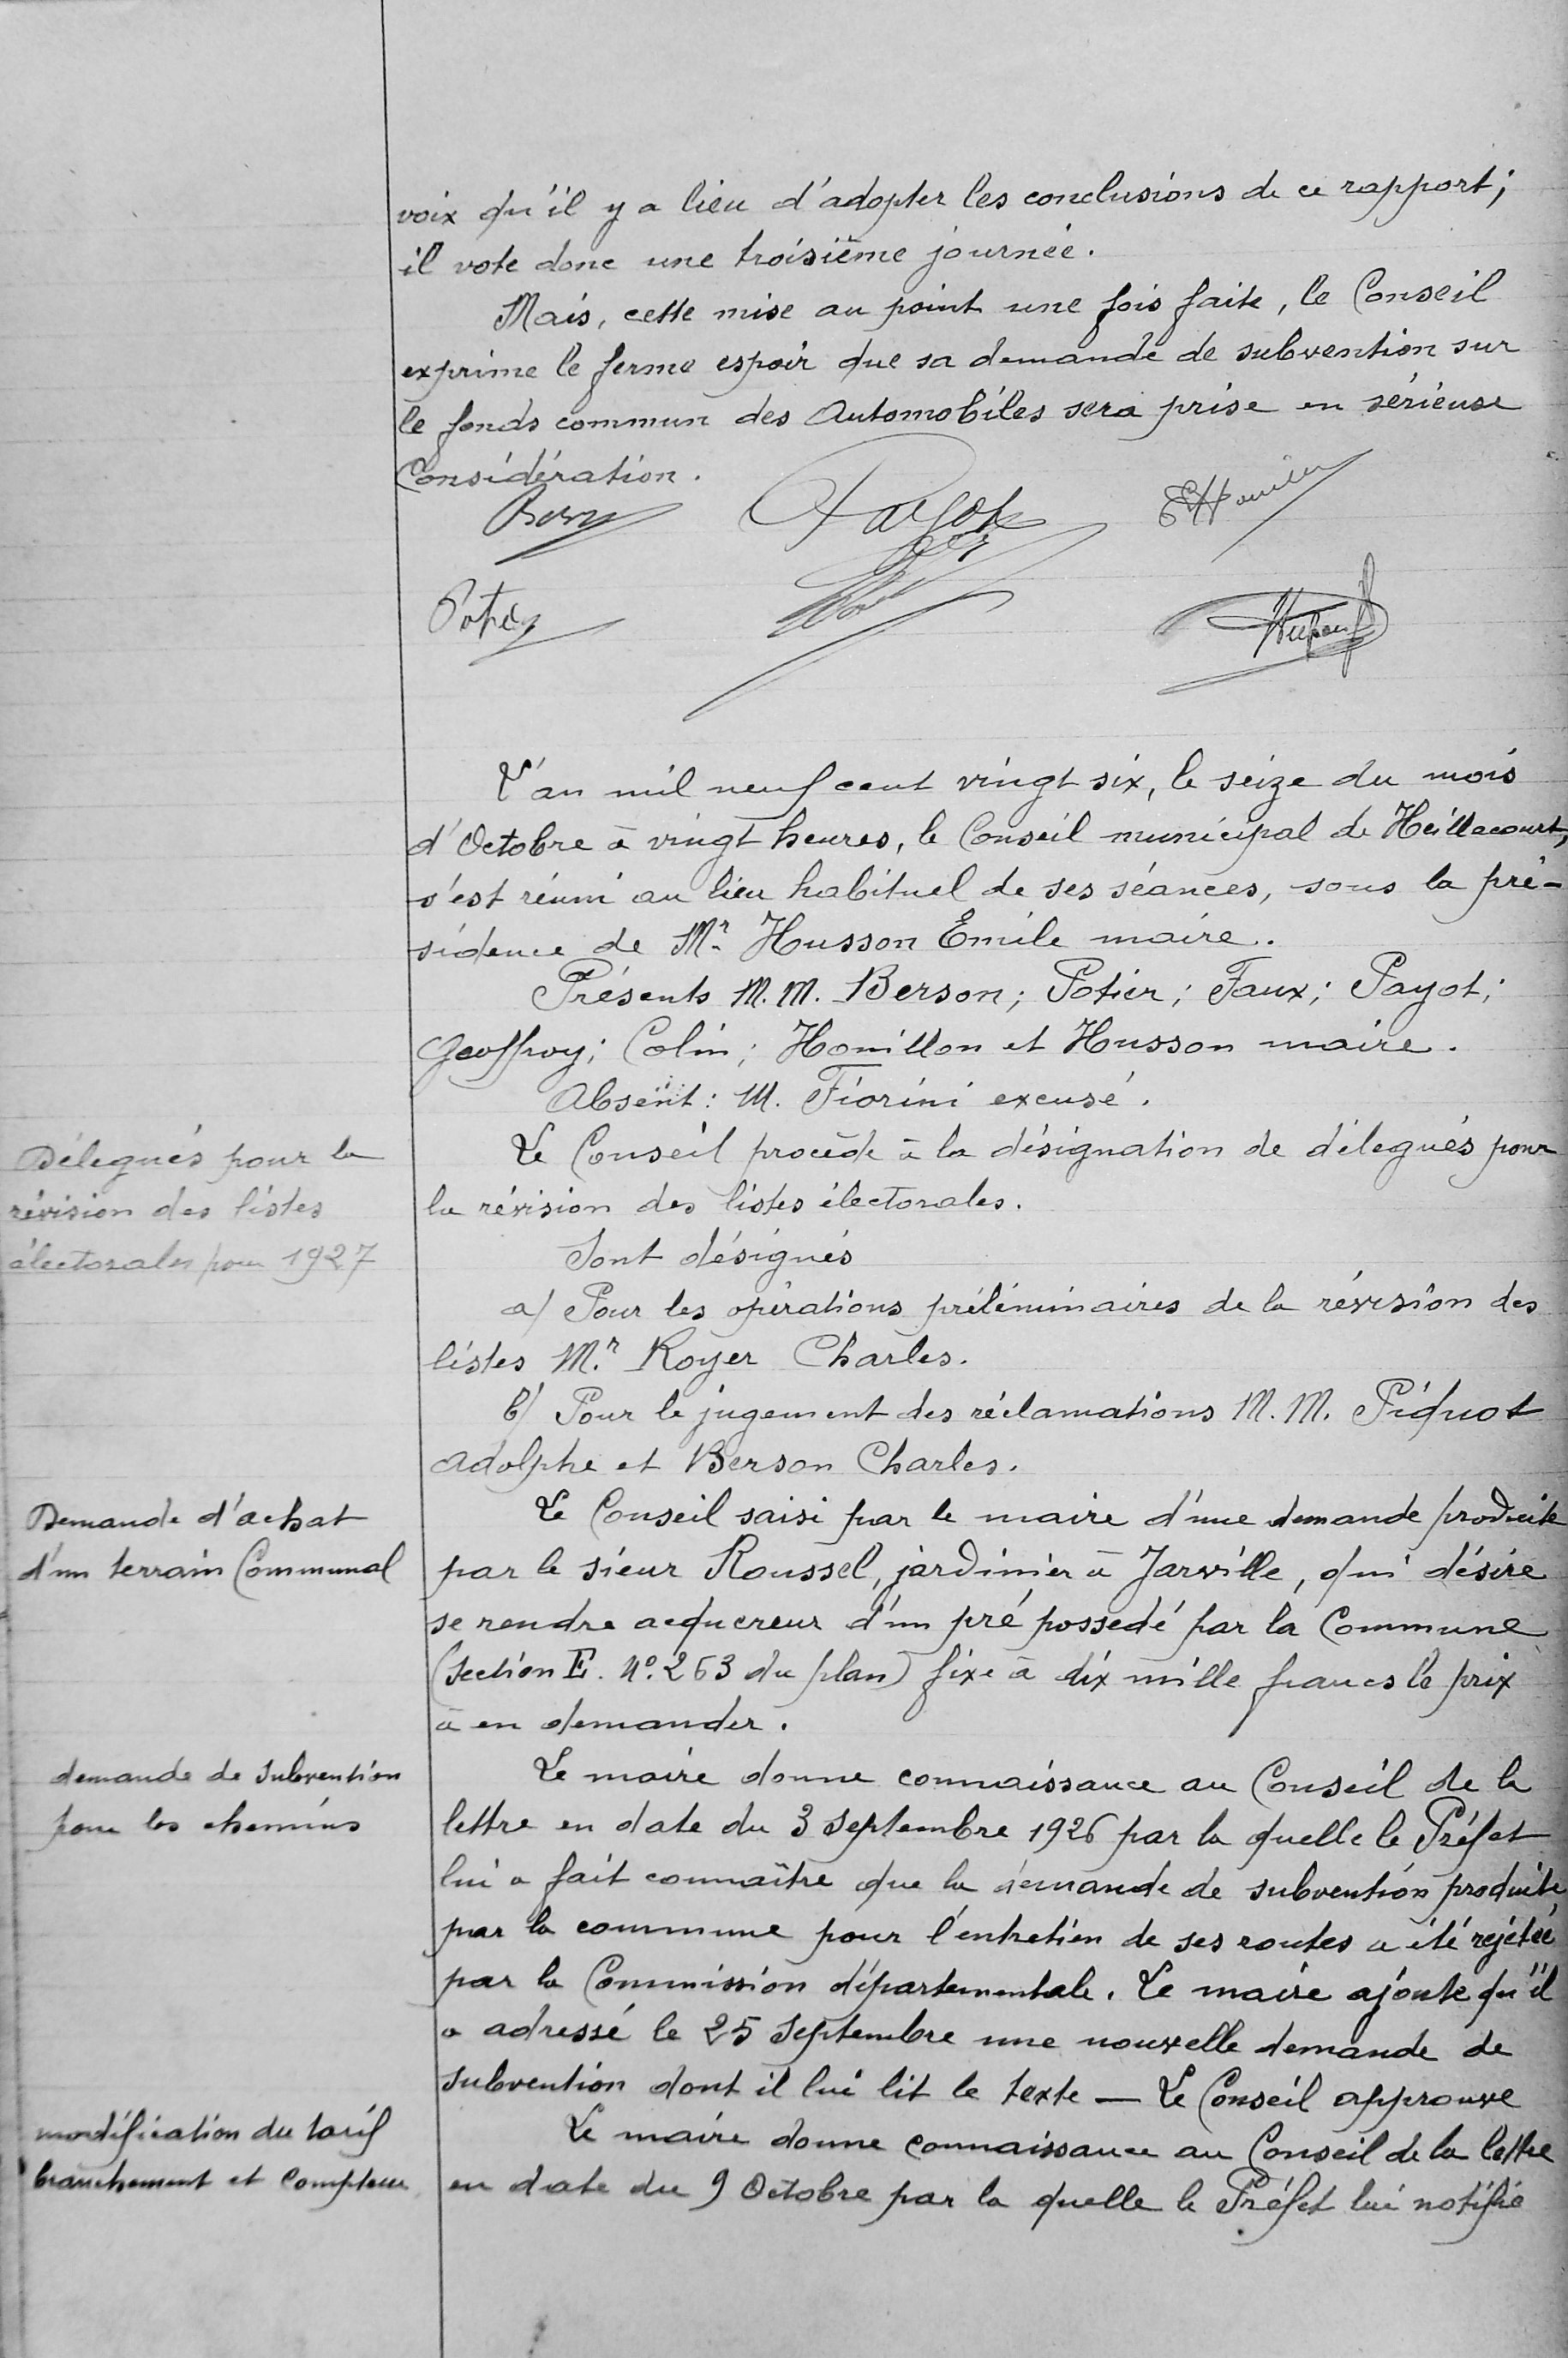 voix qu'il y a lieu d'adopter les conclusions de ce rapport;
il vote donc une troisième journée.
Mais, cette mise au point une fois faite, le Conseil
exprime le ferme espoir que sa demande de subvention sur
le fonds commun des Automobiles sera prise en sérieuse
Considération.
Payot
Potier
L'an mil neuf cent vingt six, le seize du mois
d'Octobre à vingt heures, le Conseil municipal de Heillecourt,
s'est réuni au lieu habituel de ses séances, sous la pré-
sidence de Mr. Husson Emile maire.
Présents M.M. Berson; Potier; Faux; Payot;
Geoffroy; Colin; Houillon et Husson maire.
Absent: M. Fiorini excusé.
Délégués pour la
révision des listes
électorales pour 1927
Le Conseil procède à la désignation de délegués pour
la révision des listes électorales.
Sont désignés
a) Pour les opérations préliminaires de la révision des
listes M.r Royer Charles.
b) Pour le jugement des réclamations M.M. Piquot
Adolphe et Berson Charles.
Demande d'achat
d'un terrain Communal
Le Conseil saisi par le maire d'une demande produite
par le sieur Roussel, jardinier à Jarville, qui désire
se rendre acquereur d'un pré possedé par la Commune
(Section E. No. 263 du plan) fixe à dix mille francs le prix
à en demander.
demande de subvention
pour les chemins
Le maire donne connaissance au Conseil de la
lettre en date du 3 septembre 1926 par la quelle le Préfet
lui a fait connaître que la demande de subvention produite
par la commune pour l'entretien de ses routes a été rejétée
par la Commission départementale. Le maire ajoute qu'il
a adressé le 25 Septembre une nouvelle demande de
subvention dont il lui lit le texte — Le Conseil approuve
modification du tarif
branchement et compteur
Le maire donne connaissance au Conseil de la lettre
en date du 9 Octobre par la quelle le Préfet lui notifie